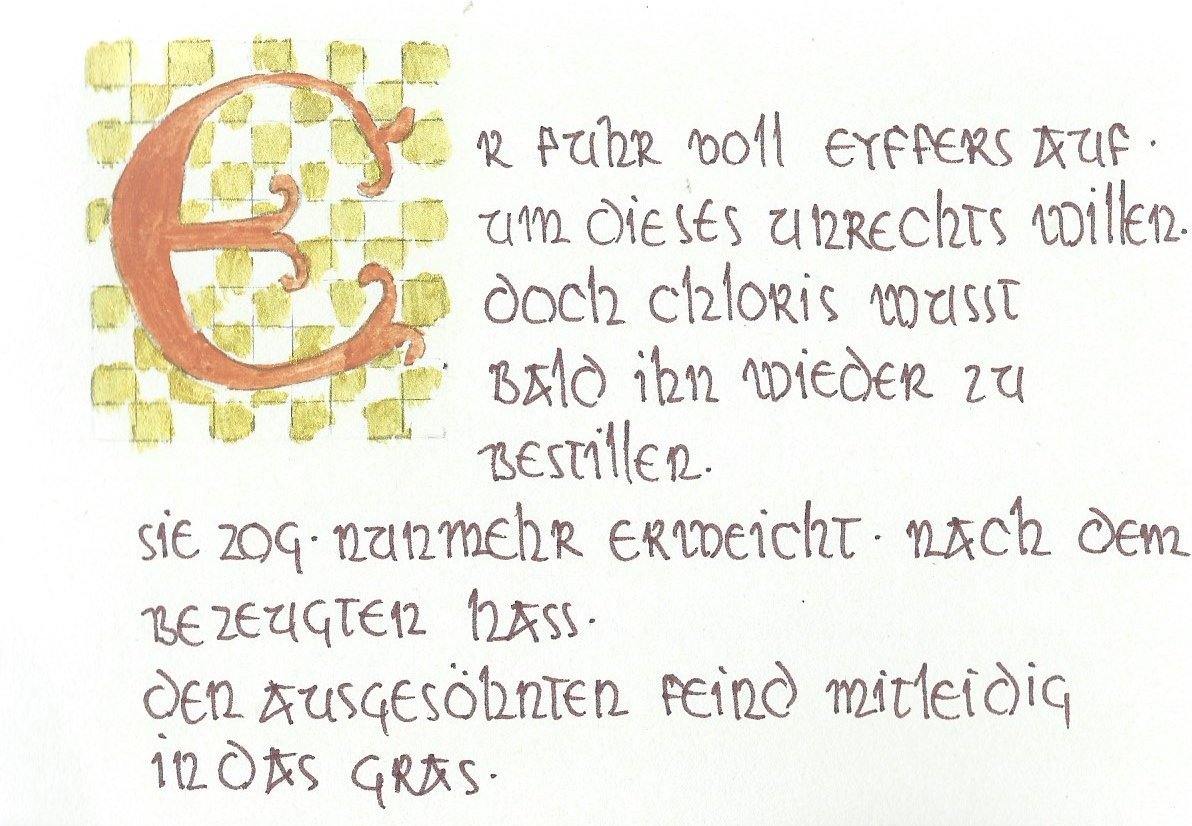 Er fuhr voll Eyffers auf.
um dieses Unrechts willen.
doch Chloris wusst
bald ihn wieder zu
bestillen.
sie zog. nunmehr erweicht. nach dem
bezeugten Hass.
den ausgesöhnten Feind mitleidig
in das Gras.